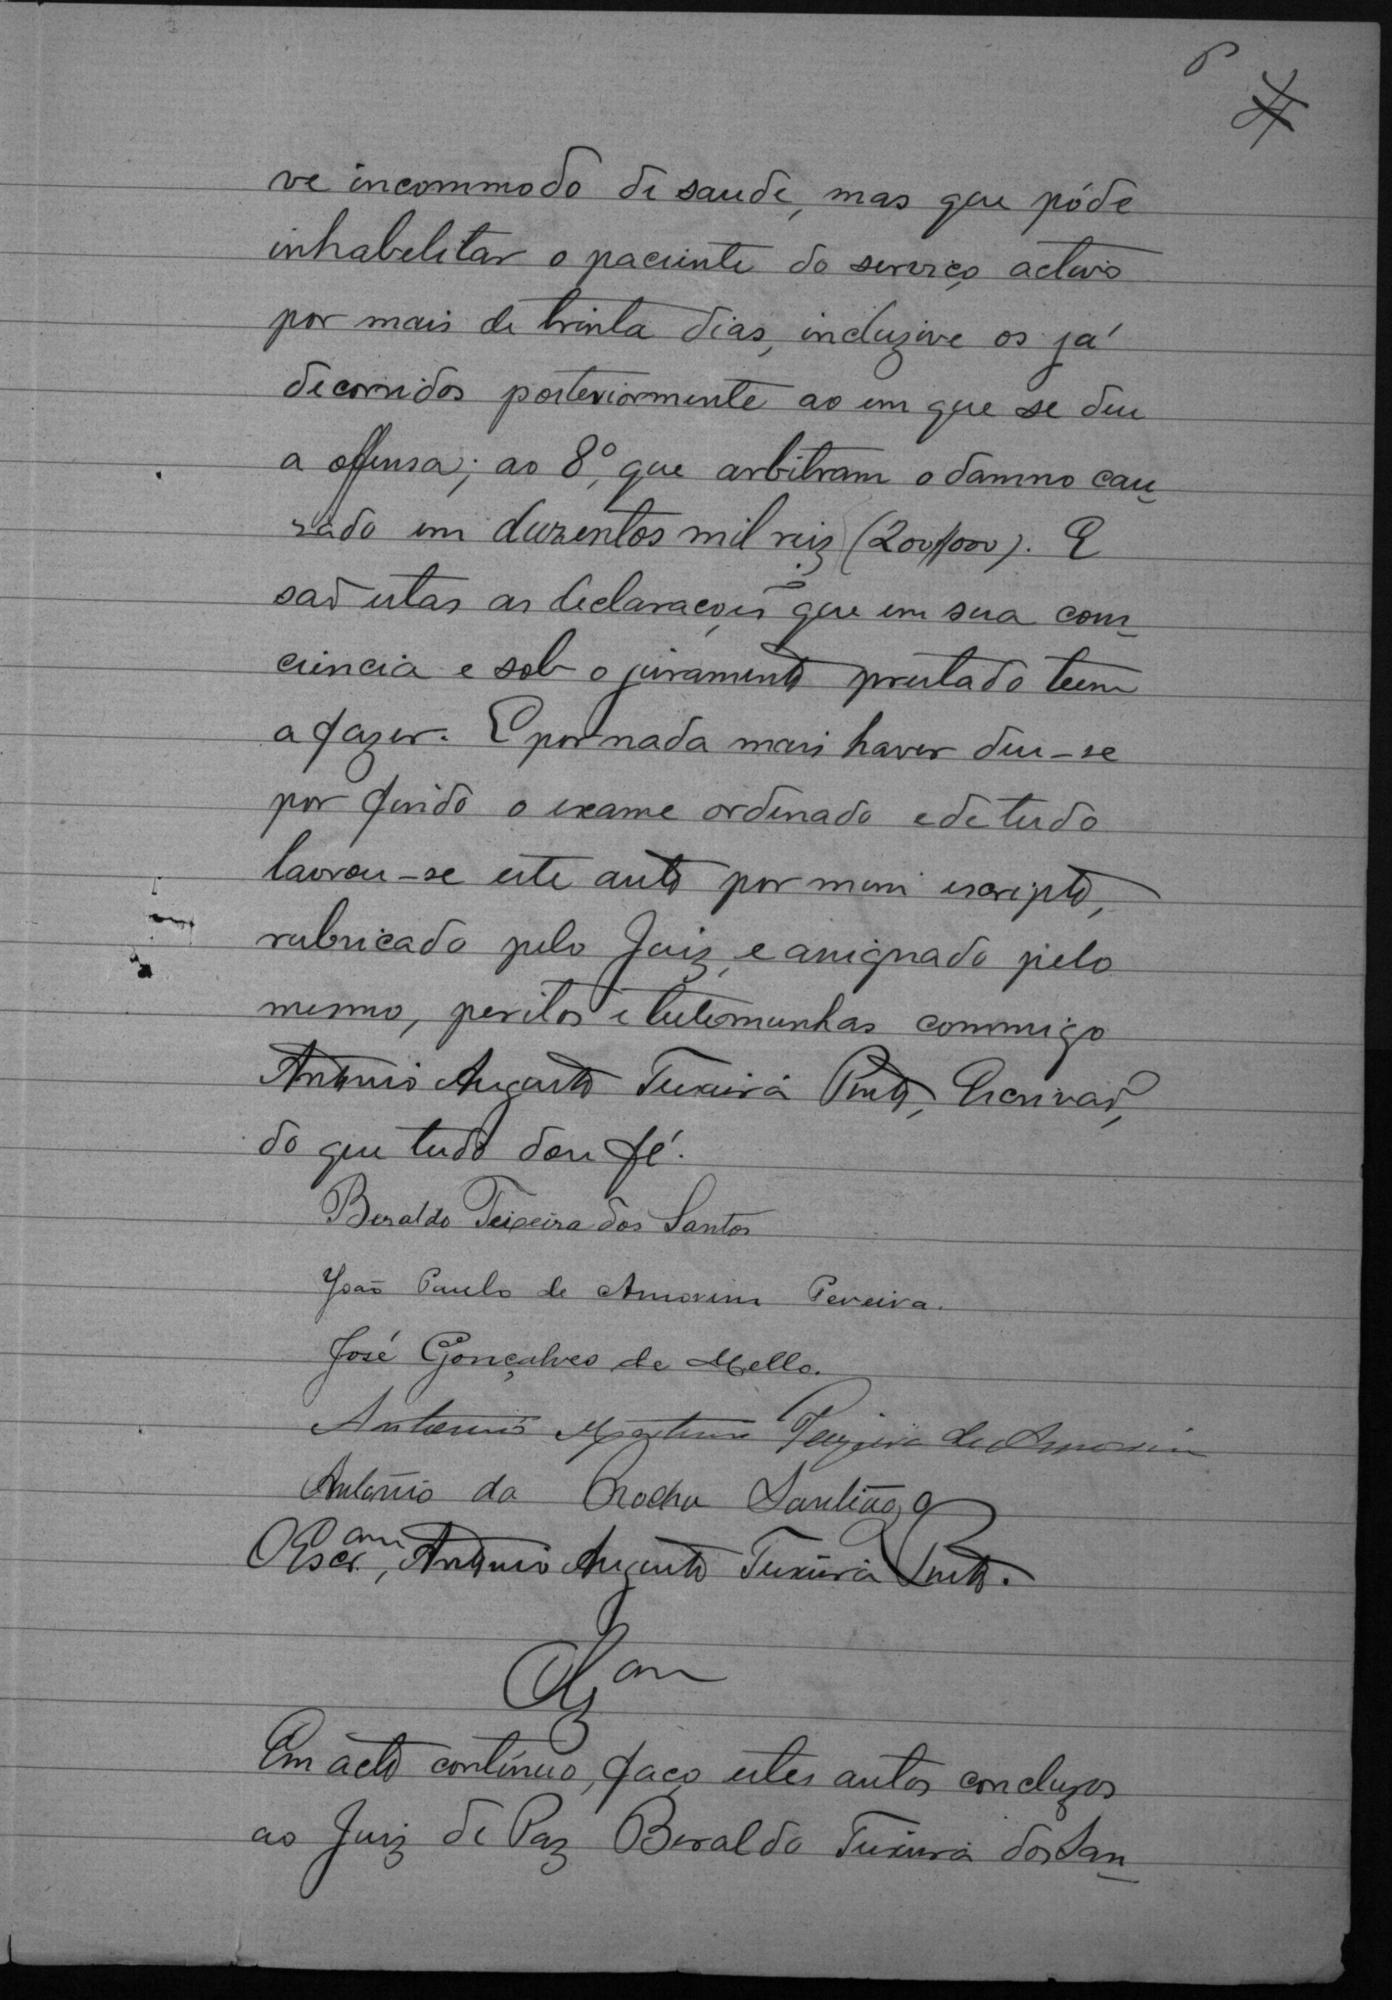 6
ve incommodo de saude, mas que póde
inhabelitar o paciente do serviço activo
por mais de trinta dias, incluzive os já
decorridos posteriormente ao em que se deu
a offensa; ao 8º, que arbitram o damno cau-
zado em duzentos mil reis (200$000). E
saõ estas as declaracções que em sua com-
ciencia e sob o juramento prestado teem
a fazer. E por nada mais haver deu-se
por findo o exame ordenado e de tudo
lavrou-se este auto por mim escripto,
rubricado pelo Juiz, e assignado pelo
mesmo, peritos e testemunhas commigo
Antonio Augusto Teixeira Pinto, Escrivaõ,
do que tudo dou fé.
Beraldo Teixeira dos Santos
Joaõ Paulo de Amorim Pereira.
José Gonçalves de Mello.
Antonio Martins Teixeira de Amorim
Antonio da Rocha Santiago
O Escr.am, Antonio Augusto Teixeira Pinto.
Clzam
Em acto continuo, faço estes autos concluzos
ao Juiz de Paz Beraldo Teixeira dos San-